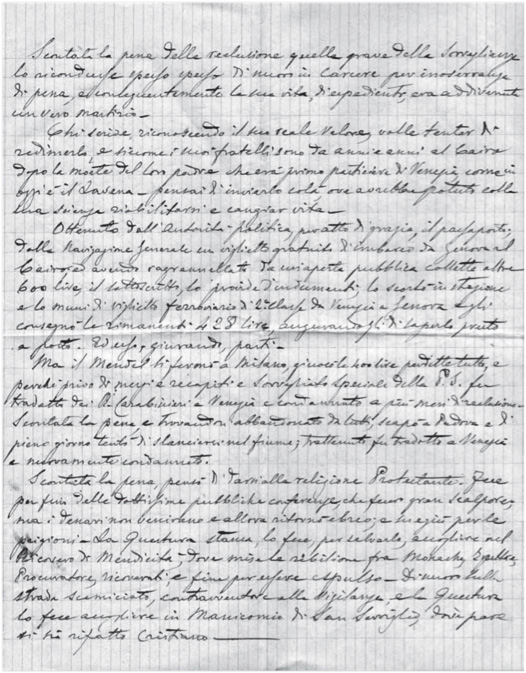 Scontata la pena della reclusione quella grave della Sorveglianza
lo ricondusse spesso spesso di nuovo in Carcere per inosservanza
di pena, e conseguentemente la sua vita, di espedienti, era addivenuta
un vero martirio –
Chi scrive, riconoscendo il suo reale valore, volle tentar di
redimerlo, e siccome i suoi fratelli sono da anni e anni al Cairo
dopo la morte del loro padre che era primo pasticciere di Venezia, come in
oggi è il Lavena – pensai d'inviarlo colà ove avrebbe potuto colla
sua scienza riabilitarsi e cangiar vita –
Ottenuto dall'Autorità politica, per atto di grazia, il passaporto,
dalla Navigazione Generale un viglietto gratuito d'imbarco da Genova al
Cairo, e avendo raggranellato da un'aposta pubblica colletta oltre
600 lire, il sottoscritto, lo provide d'indumenti, lo scortò in stazione
e lo munì di viglietto ferroviario di 2ª Classe da Venezia a Genova e gli
consegnò le rimanenti 428 lire, augurandogli di saperlo presto
a posto. Ed esso, giurando, partì –
Ma il Mendel si fermò a Milano, giuocò le 400 lire perdette tutto, e
perché privo di mezzi e recapiti e Sorvegliato speciale della P.S. fu
tradotto dai R. Carabinieri a Venezia e condannato a più mesi di reclusione –
Scontata la pena, e trovandosi abbandonato da tutti, scapò a Padova e di
pieno giorno tentò di slanciarsi nel fiume; trattenuto fu tradotto a Venezia
e nuovamente condannato.
Scontata la pena, pensò di darsi alla religione Protestante. Fece
per fino delle dottissime pubbliche conferenze, che fecer gran scalpore,
ma i denari non venivano e allora ritornò ebreo; e su e giù per le
prigioni – La Questura stanca, lo fece, per salvarlo, accogliere nel
Ricovero di Mendicità, dove mise la ribellione fra Monache, Ispettore,
Procuratore, ricoverati, e finì per essere espulso – Di nuovo sulla
strada scamiciato, contravventore alla Vigilanza, e la Questura
lo fece accogliere in Manicomio di San Servigliò, dove pare
si sia rifatto Cristiano –